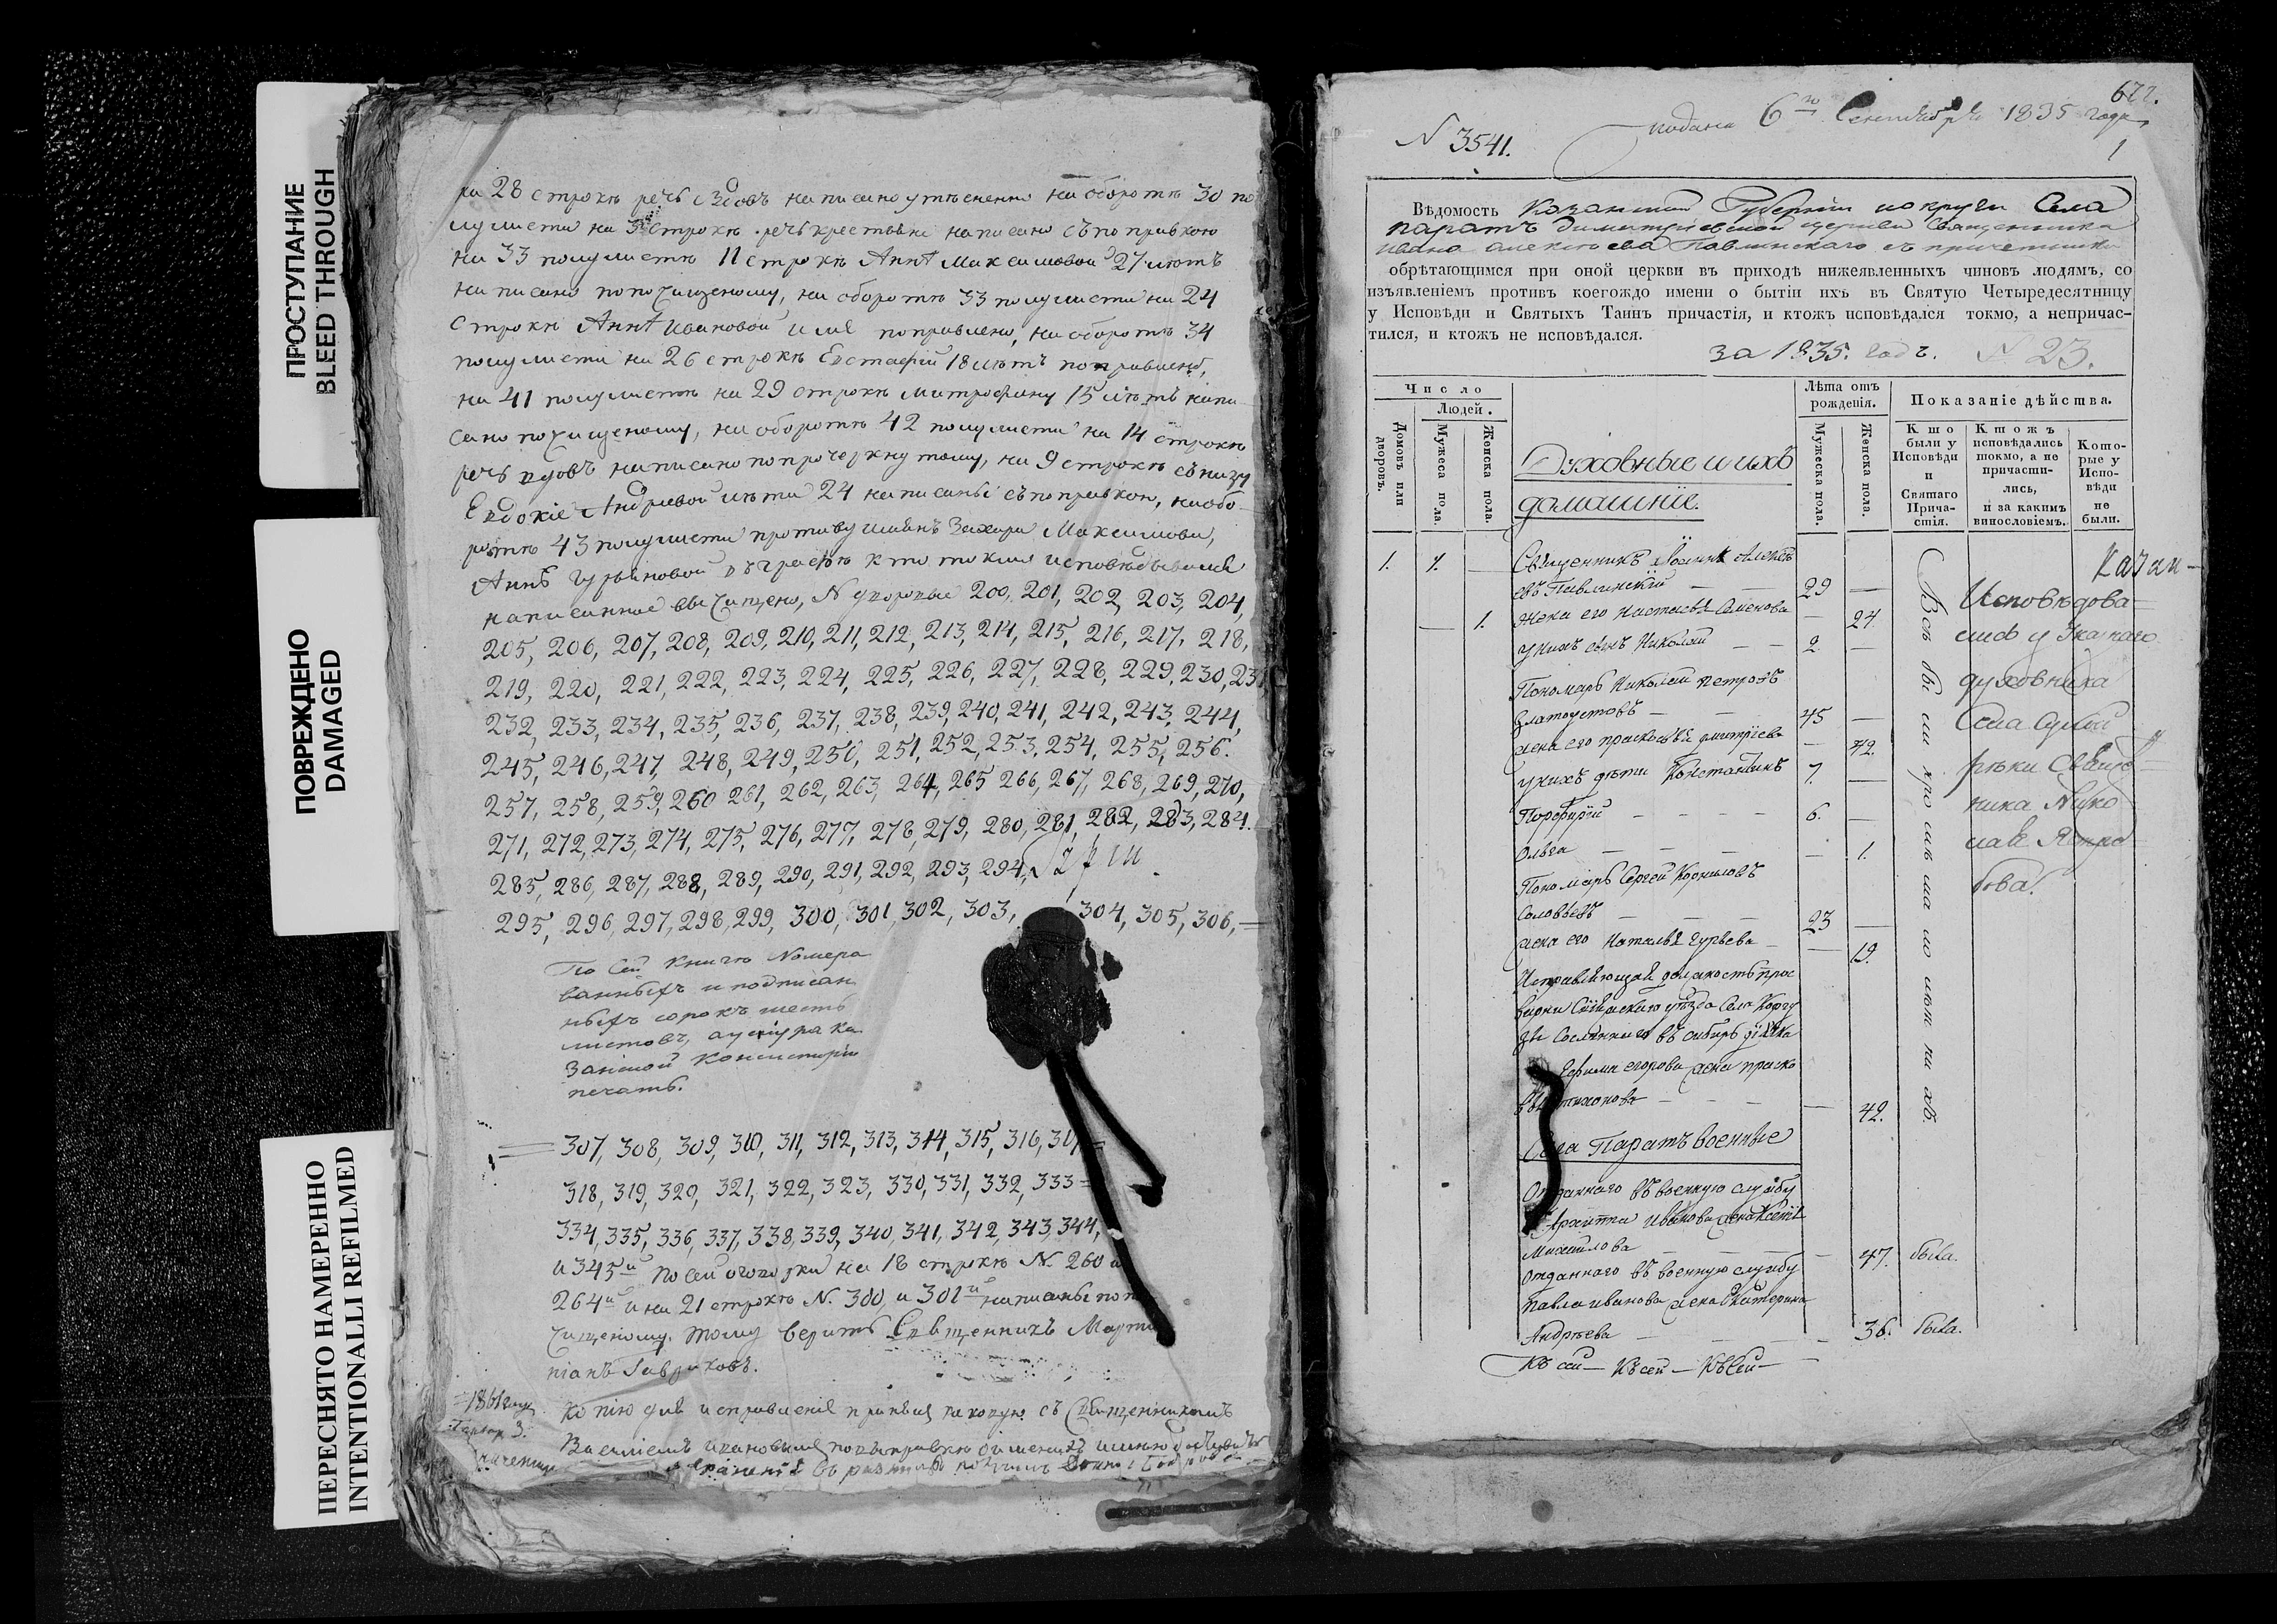 ПРОСТУПАНИЕ
BLEED THROUGH
ПОВРЕЖДЕНО
DAMAGED
ПЕРЕСНЯТО НАМЕРЕННО
INTENTIONALLI REFILMED
на 28 строкѣ речь написано на оборотѣ 30 по
лулиста на строкѣ речь крестьяне написано съ поправкою
на 33 полулистѣ 11 строкѣ Аннѣ Максимовой 27 лѣтъ
написано по почищеному, на оборотѣ 33 полулиста на 24
строкѣ Аннѣ Ивановой имя поправлено, на оборотѣ 34
полулиста на 26 строкѣ Евстафій 18 лѣтъ поправлено,
на 41 полулистѣ на 29 строкѣ Митрофану 15 лѣтъ напи
сано по чищеному, на оборотѣ 42 полулиста на 14 строкѣ
речь вдовъ написано по прочеркнутому, на 9 строкѣ съ низу
Евдокіе Андреевой лѣта 24 написаны съ поправкою, на обо
ротѣ 43 полулиста противу имянъ Захара Максимова,
Аннѣ Гурьяновой въ графѣ кто токмо исповѣдывался
написанное вычищено, N дворовые 200, 201, 202, 203, 204,
205, 206, 207, 208, 209, 210, 211, 212, 213, 214, 215, 216, 217, 218,
219, 220, 221, 222, 223, 224, 225, 226, 227, 228, 229, 230, 231
232, 233, 234, 235, 236, 237, 238, 239, 240, 241, 242, 243, 244,
245, 246, 247, 248, 249, 250, 251, 252, 253, 254, 255, 256.
257, 258, 259, 260 261, 262, 263, 264, 265 266, 267, 268, 269, 270,
271, 272, 273, 274, 275, 276, 277, 278, 279, 280, 281, 282, 283, 284.
285, 286, 287, 288, 289, 290, 291, 292, 293, 294,
295, 296, 297, 298, 299, 300, 301, 302, 303, 304, 305, 306, =
По Сей книгѣ Номера
ванныхъ и подписан
ныхъ сорокъ шесть
листовъ, а у шнура Ка
занской Консисторіи
печать.
= 307, 308, 309, 310, 311, 312, 313, 314, 315, 316, 317 =
318, 319, 320, 321, 322, 323, 330, 331, 332, 333 =
334, 335, 336, 337, 338, 339, 340, 341, 342, 343, 344,
и 345й по сей на 18 строкѣ N. 260 и
264й и на 21 строкѣ N. 300, и 301й написаны по п
чищеному. тому верить Священникъ Марти
ніанъ Гавриковъ.
1861 году
Генвар 3.
Копію для исправленія принялъ съ Священникомъ
Василіемъ Ивановымъ
672.
подана 6го Сентября 1835 года
N 3541.
1
Вѣдомость Казанской Губерніи округи Села
Паратъ Димитріевской церкви Священника
Ивана Алексѣева Павлинскаго съ причетники
обрѣтающимся при оной церкви въ приходѣ нижеявленныхъ чиновъ людямъ, со
изъявленіемъ противъ коегождо имени о бытіи ихъ въ Святую Четыредесятницу
у Исповѣди и Святыхъ Таинъ причастія, и ктожъ исповѣдался токмо, а непричас-
тился, и ктожъ не исповѣдался.
за 1835. годъ. N 23.
Число
Людей.
Домовъ или дворовъ.
Мужеса пола.
Женска пола.
Духовные и ихъ
домашніе.
Лѣта отъ рожденія.
Мужеска пола.
Женска пола.
Показаніе дѣйства.
Кто были у Исповѣди и Святаго Причастія.
Ктожъ исповѣдались токмо, а не причастились, и за какимъ винословіемъ.
Которые у Исповѣди не были.
1. 1. — Священникъ Іоаннъ Алексѣ
евъ Павлинскій — 29 —
— 1. Жена его Настасья Семенова — 24
У нихъ сынъ Николай — — 2 —
Пономарь Николай Петровъ
Златоустовъ — — 45 —
жена его Прасковья Дмитріева — 42.
У нихъ дѣти Константинъ 7. —
Порфирій — — — — 6. —
Ольга — — — — 1.
Пономарь Сергей Корниловъ
Соловьевъ — — — 23 —
жена его Наталья Гурьева — — 19.
Исправляющая должность прос
вирни Свіяжскаго уѣзда Села
Сосланнаго въ Сибирь дьячка
Ефима Егорова жена Праско
вья Тихонова — — — — 42.
Всѣ были кромѣ малолѣтнахъ.
Казан-
Исповѣдова
лись у Указнаго
духовника
Села Сухой
рѣки Священ
ника Нико
лая Ястре
бова.
Села Паратъ военные
Отданнаго въ военную службу
Архипа Иванова жена Ксенія
Михайлова — — — — 47. была.
Отданнаго въ военную службу
Павла Иванова жена Екатерина
Андреева — — — — 36. была.
Къ сей — Къ сей — Къ сей —